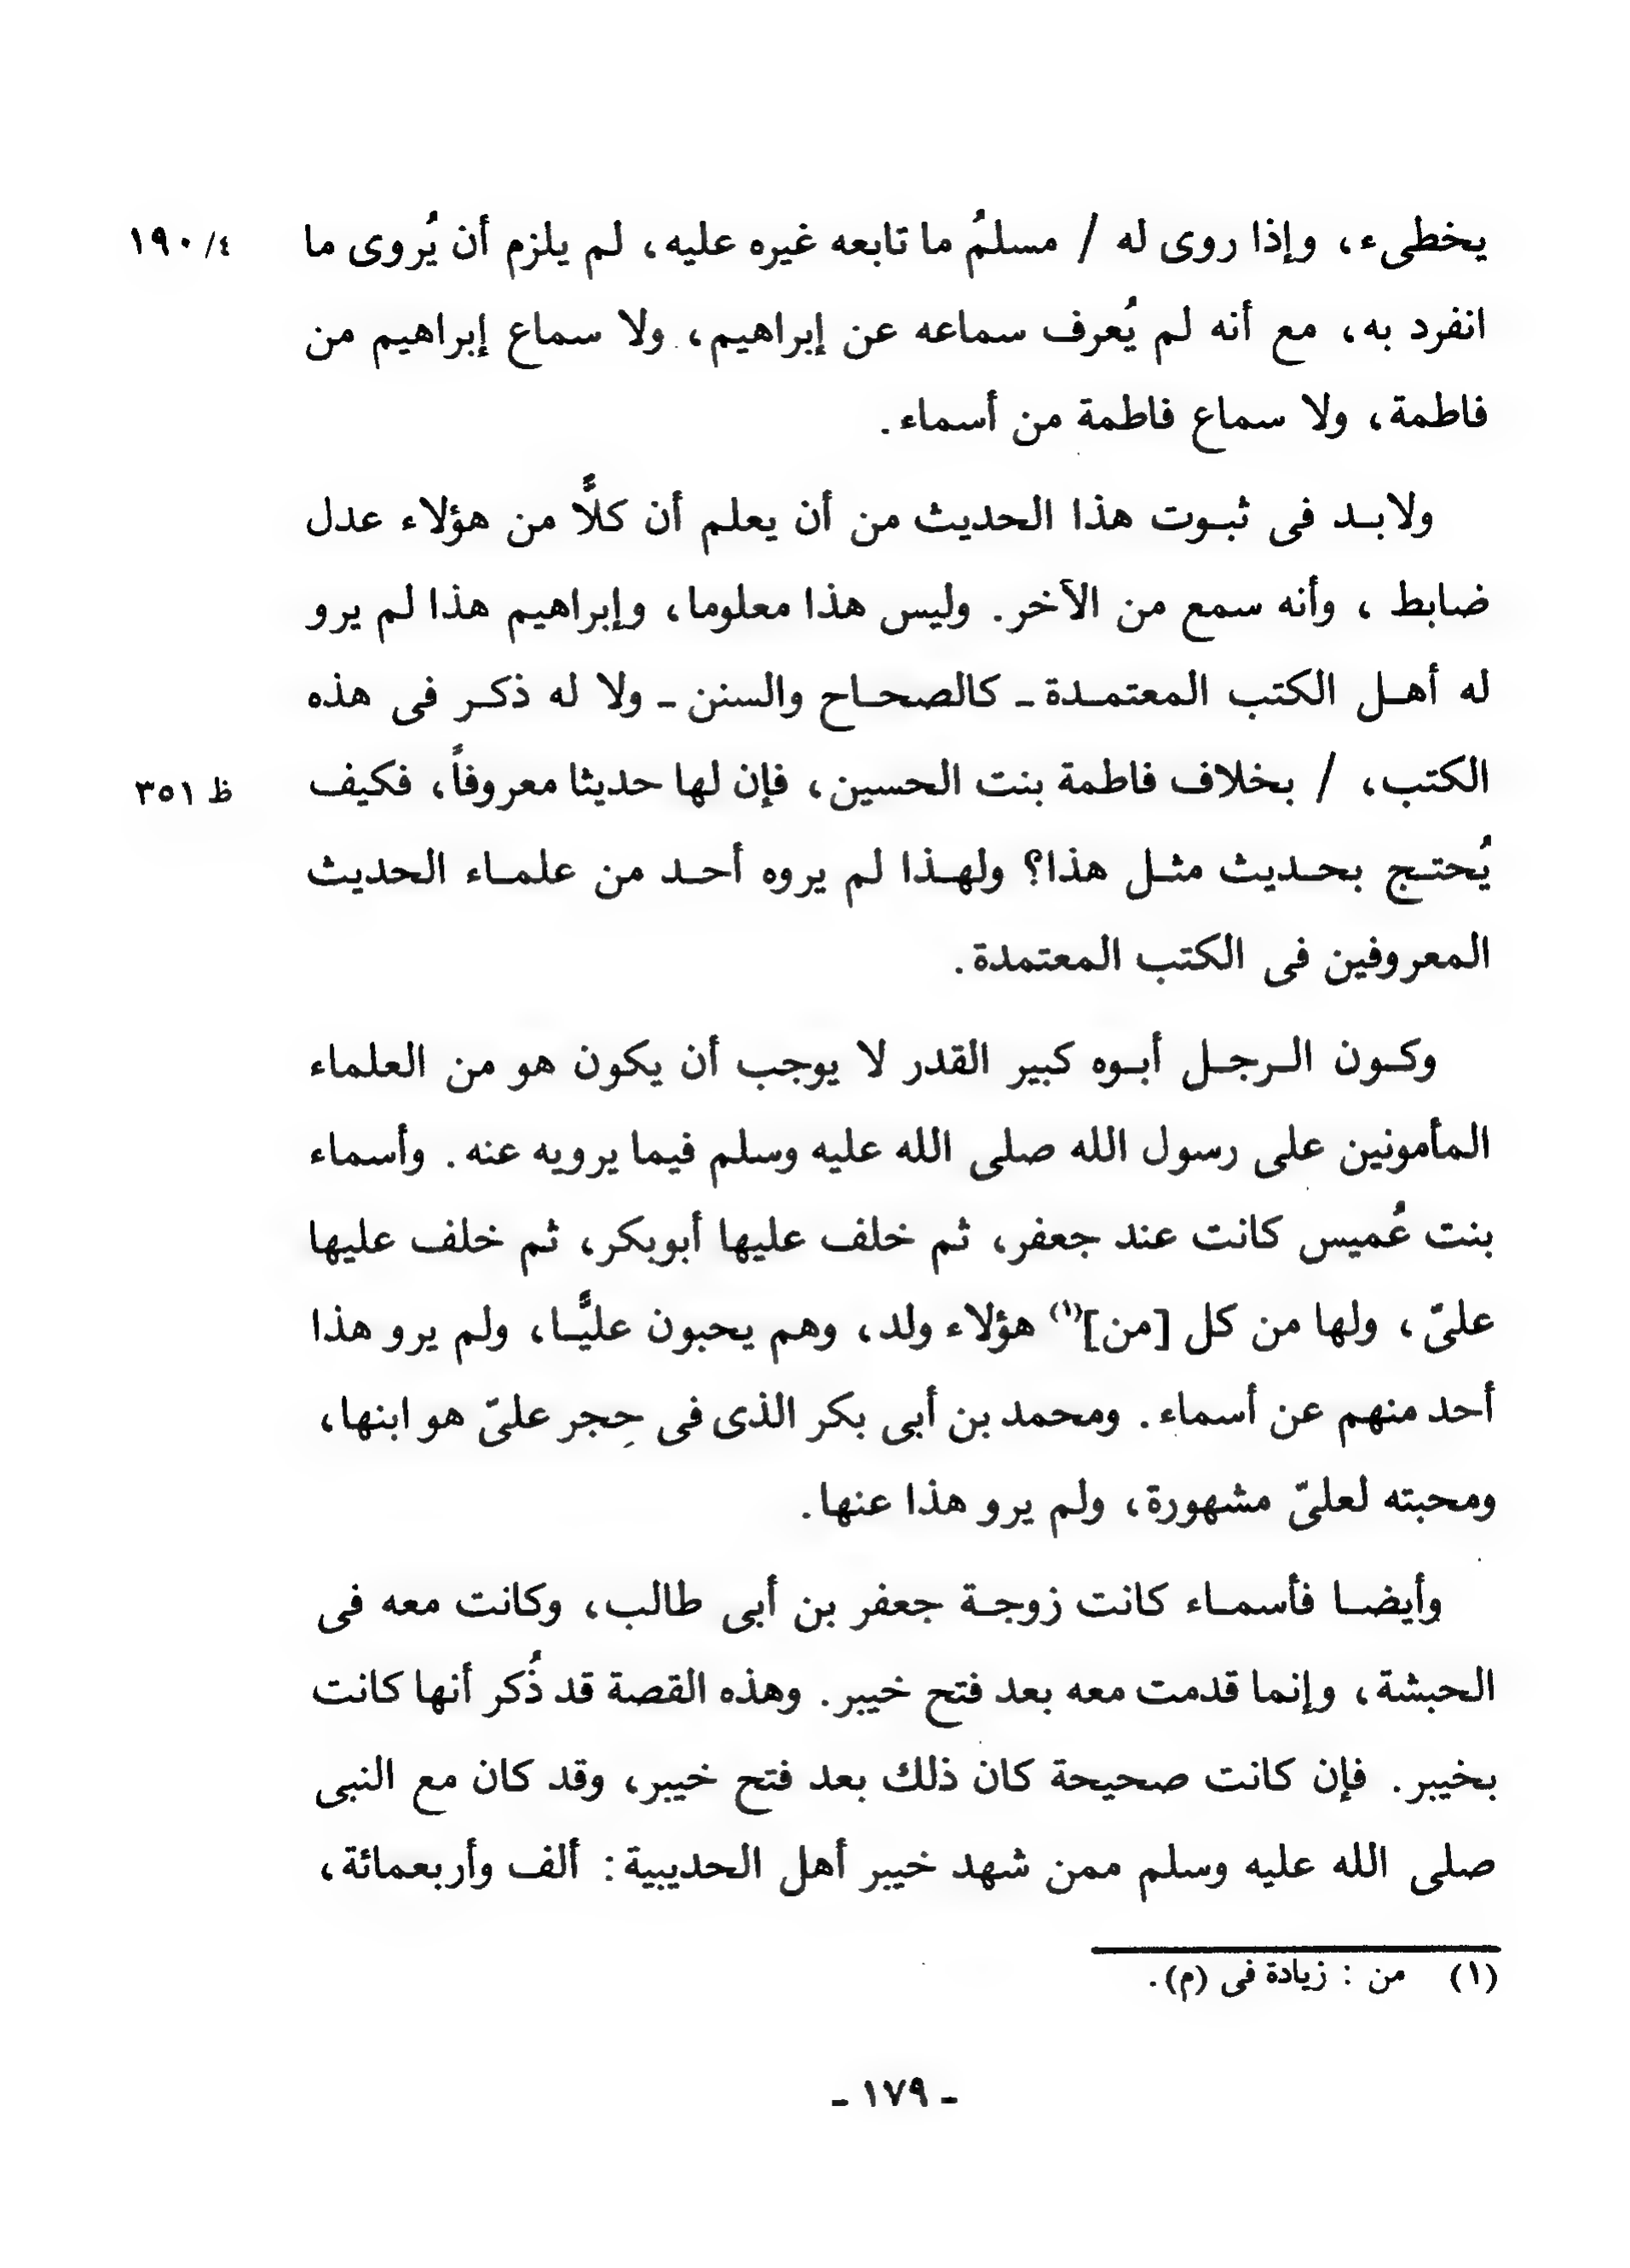 يخطىء، وإذا روى له / مسلمُ ما تابعه غيره عليه، لم يلزم أن يُروى ما ١٩٠/٤
انفرد به، مع أنه لم يُعرف سماعه عن إبراهيم، ولا سماع إبراهيم من
فاطمة، ولا سماع فاطمة من أسماء.
ولابد فى ثبوت هذا الحديث من أن يعلم أن كلاًّ من هؤلاء عدل
ضابط ، وأنه سمع من الآخر. وليس هذا معلوما، وإبراهيم هذا لم يرو
له أهل الكتب المعتمدة ـ كالصحاح والسنن ـ ولا له ذكر فى هذه
الكتب، / بخلاف فاطمة بنت الحسين، فإن لها حديثا معروفاً، فكيف ظ ٣٥١
يُحتج بحديث مثل هذا؟ ولهذا لم يروه أحد من علماء الحديث
المعروفين فى الكتب المعتمدة.
وكون الرجل أبوه كبير القدر لا يوجب أن يكون هو من العلماء
المأمونين على رسول الله صلى الله عليه وسلم فيما يرويه عنه. وأسماء
بنت عُميس كانت عند جعفر، ثم خلف عليها أبوبكر، ثم خلف عليها
علىّ، ولها من كل [من](١) هؤلاء ولد، وهم يحبون عليًّا، ولم يرو هذا
أحد منهم عن أسماء. ومحمد بن أبى بكر الذى فى حِجر علىّ هو ابنها،
ومحبته لعلىّ مشهورة، ولم يرو هذا عنها.
وأيضا فأسماء كانت زوجة جعفر بن أبى طالب، وكانت معه فى
الحبشة، وإنما قدمت معه بعد فتح خيبر. وهذه القصة قد ذُكر أنها كانت
بخيبر. فإن كانت صحيحة كان ذلك بعد فتح خيبر، وقد كان مع النبى
صلى الله عليه وسلم ممن شهد خيبر أهل الحديبية: ألف وأربعمائة،
(١) من : زيادة فى (م).
ـ ١٧٩ ـ